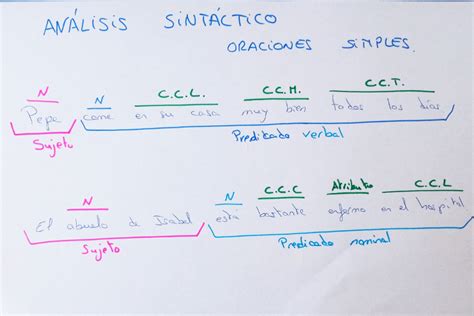 ANÁLISIS SINTÁCTICO
ORACIONES SIMPLES.
N N C.C.L. C.C.M. C.C.T.
Pepe come en su casa muy bien todos los días
Sujeto Predicado verbal
N N C.C.C Atributo C.C.L
El abuelo de Isabel está bastante enfermo en el hospital
Sujeto Predicado nominal